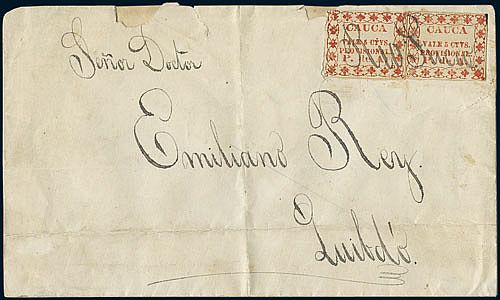 CAUCA
VALE 5 CTVS.
PROVISIONAL
CAUCA
VALE 5 CTVS.
PROVISIONAL
Señor Doctor
Emiliano Rey.
Quibdó.